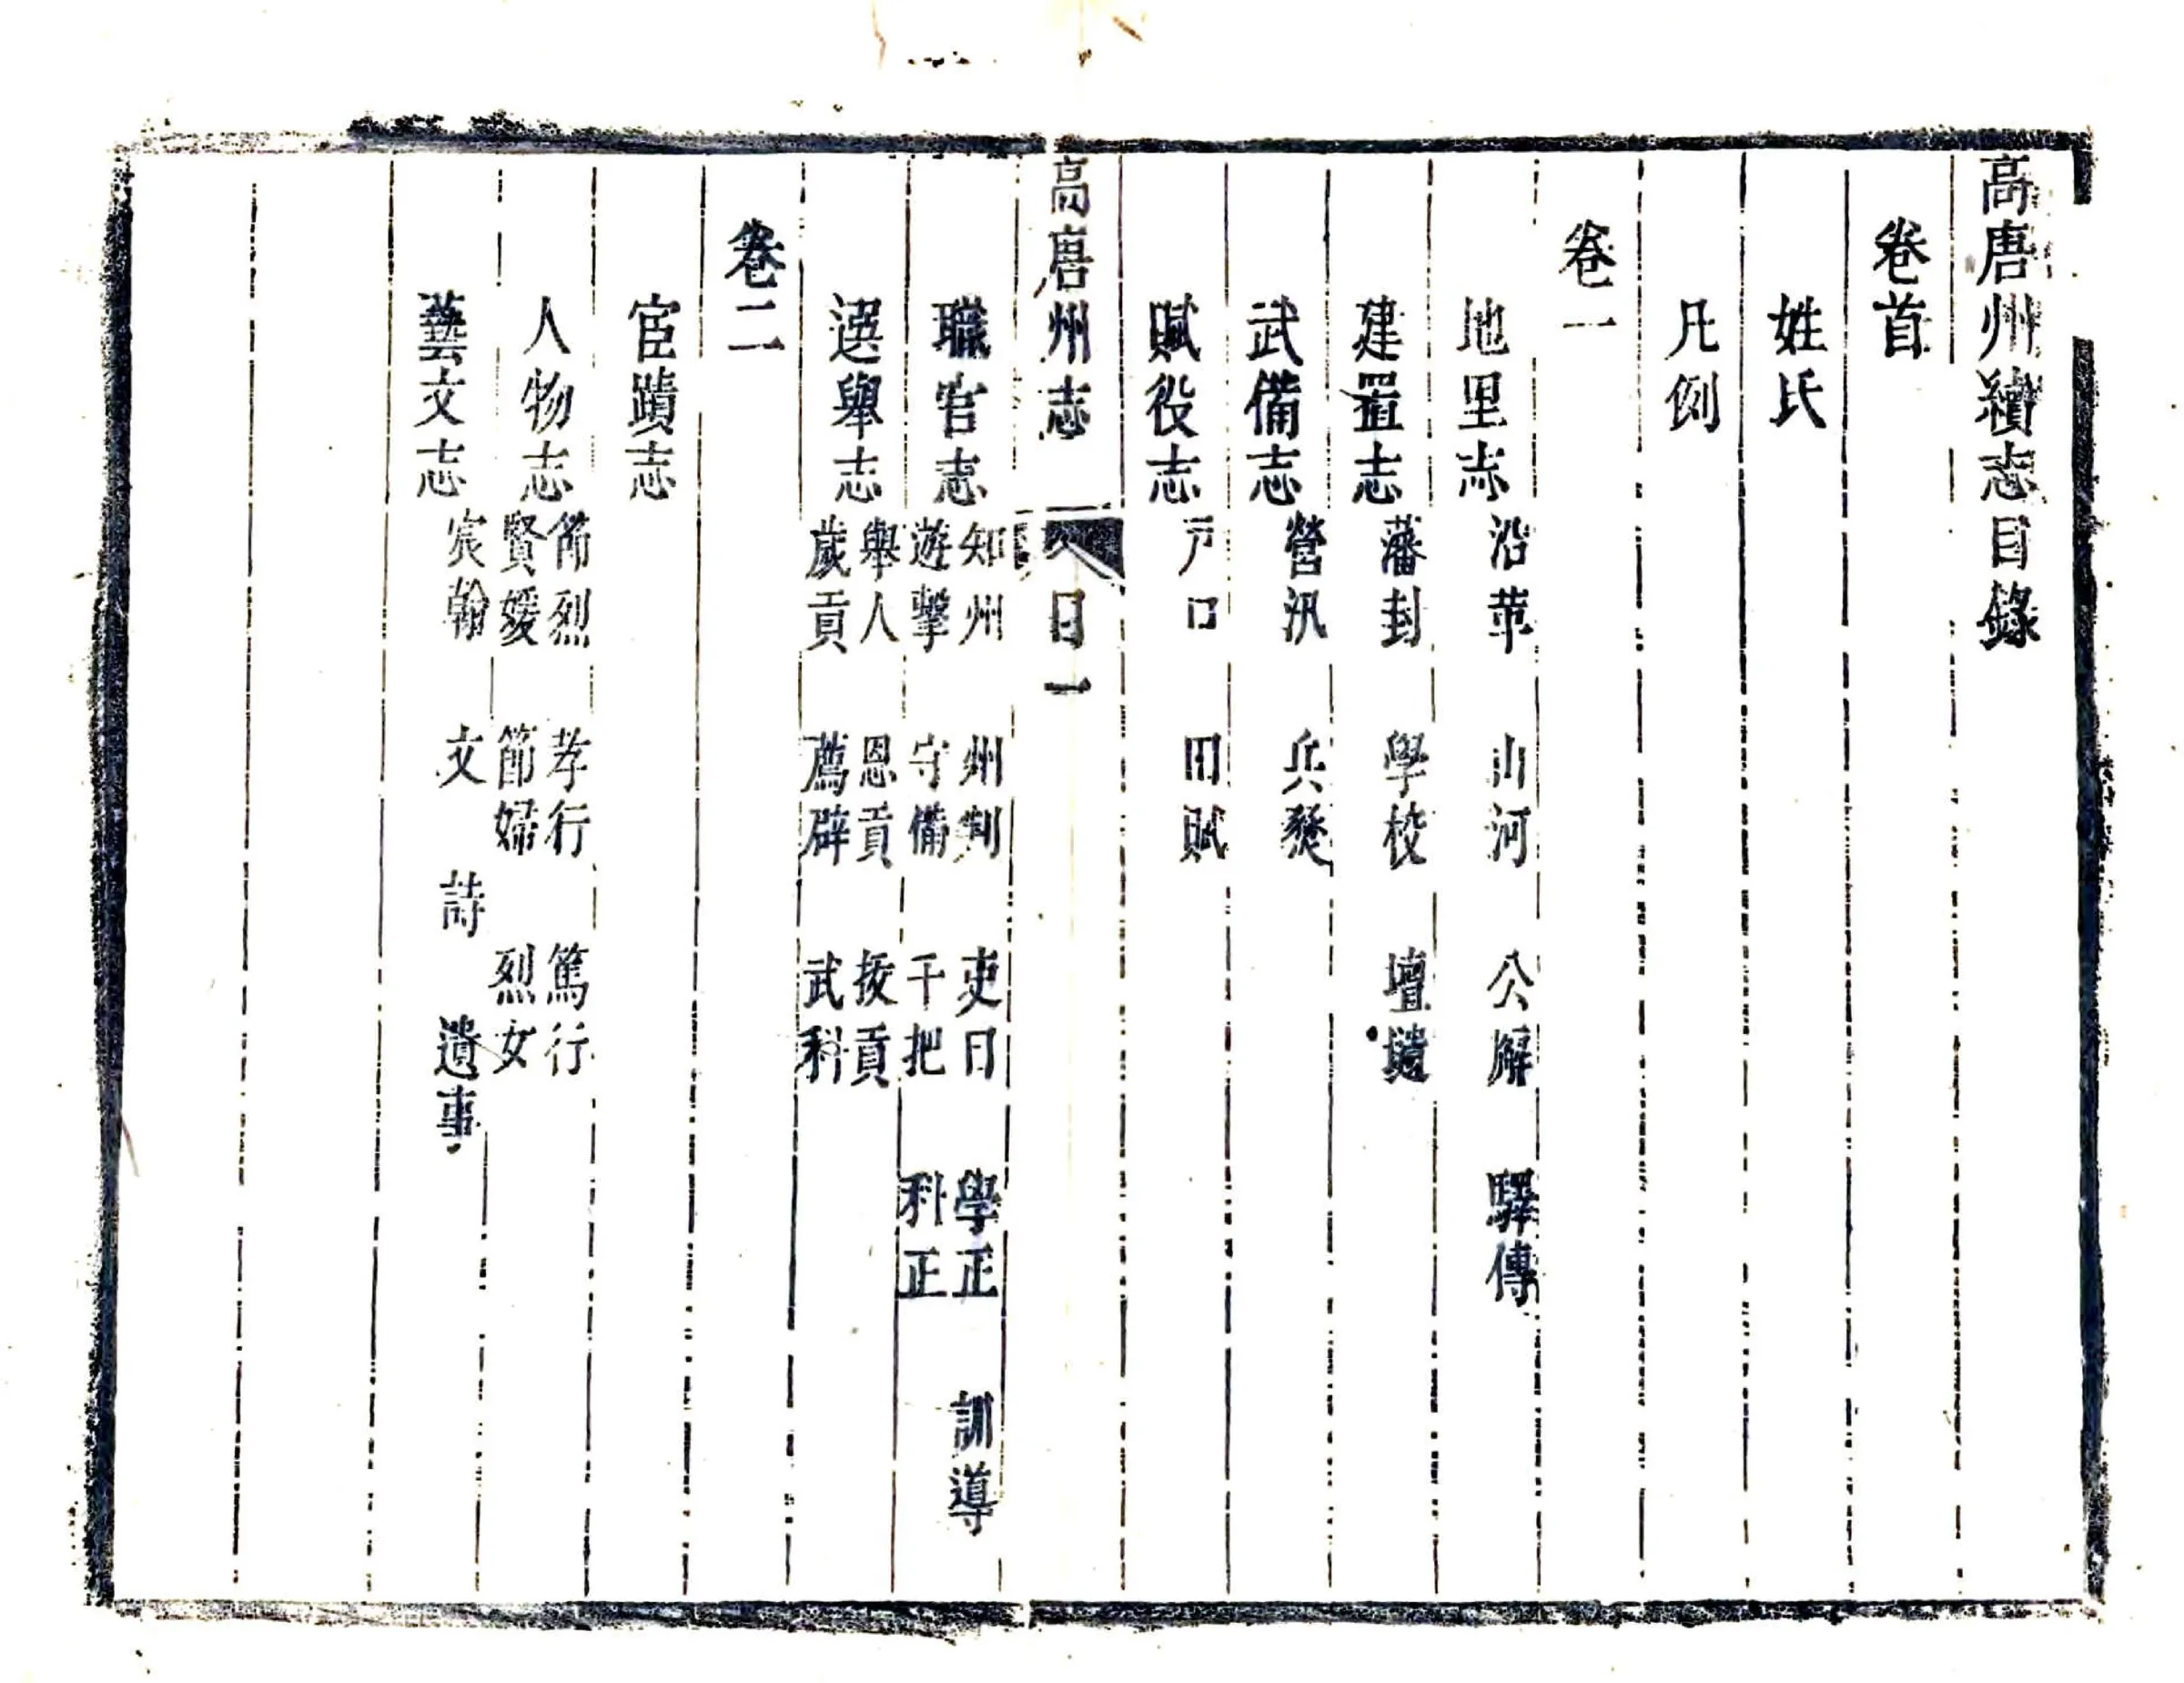 高唐州續志目錄
卷首
姓氏
凡例
卷一
地里志 沿革 山河 公廨 驛傳
建置志 藩封 學校 壇壝
武備志 營汛 兵燹
賦役志 戶口 田賦
高唐州志 目一
職官志 知州 州判 吏目 學正 訓導
遊擊 守備 千把 科正
選舉志 舉人 恩貢 拔貢
歲貢 薦辟 武科
卷二
宦蹟志
人物志 節烈 孝行 篤行
賢媛 節婦 烈女
藝文志 宸翰 文 詩 遺事